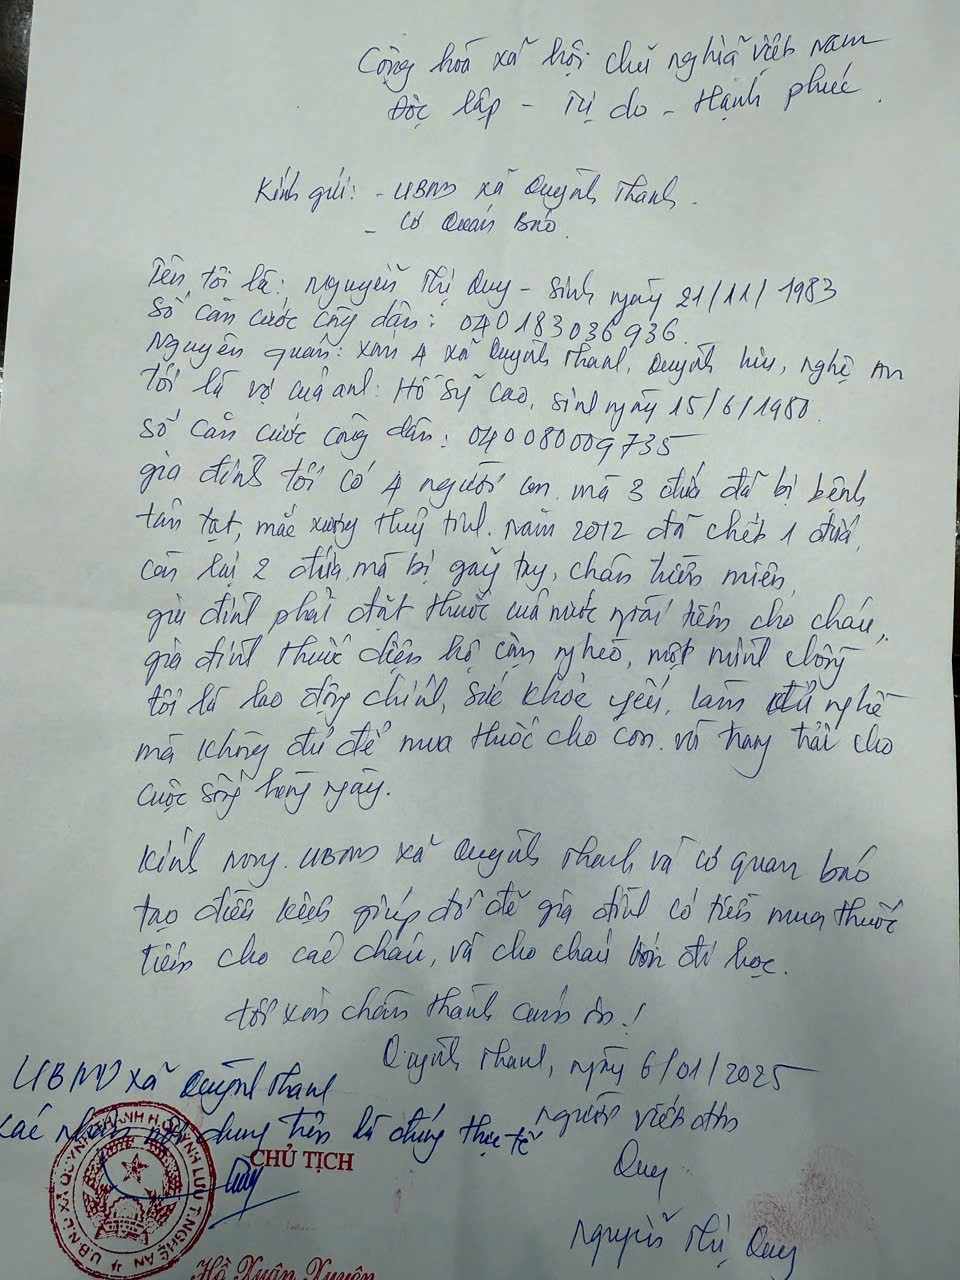 Cộng hóa xã hội chủ nghĩa Việt Nam
Độc lập - Tự do - Hạnh phúc.
Kính gửi: - UBND xã Quỳnh Thanh.
- Cơ Quan Báo.
Tên tôi là: Nguyễn Thị Quy - Sinh ngày 21/11/1983
Số căn cước công dân: 040183036936.
Nguyên quán: xóm 4 xã Quỳnh Thanh, Quỳnh Lưu, Nghệ An
Tôi là vợ của anh: Hồ Sỹ Cao, sinh ngày 15/6/1980.
Số căn cước công dân: 040080009735
gia đình tôi có 4 người con mà 3 đứa đã bị bệnh
tàn tật, mắc xương thủy tinh. Năm 2012 đã chết 1 đứa,
còn lại 2 đứa mà bị gãy tay, chân triền miên,
gia đình phải đặt thuốc của nước ngoài tiêm cho cháu,
gia đình thuộc diện hộ cận nghèo, một mình chồng
tôi là lao động chính, sức khỏe yếu, làm đủ nghề
mà không đủ để mua thuốc cho con và trang trải cho
cuộc sống hàng ngày.
Kính mong UBND xã Quỳnh Thanh và cơ quan báo
tạo điều kiện giúp đỡ để gia đình có tiền mua thuốc
tiêm cho các cháu, và cho cháu đi học.
Tôi xin chân thành cảm ơn!
Quỳnh Thanh, ngày 6/01/2025
UBND xã Quỳnh Thanh
Xác nhận nội dung trên là đúng thực tế
người viết đơn
CHỦ TỊCH
Quy
Nguyễn Thị Quy
U.B.N.D XÃ QUỲNH THANH H.QUỲNH LƯU T.NGHỆ AN
Hồ Xuân Xuyên